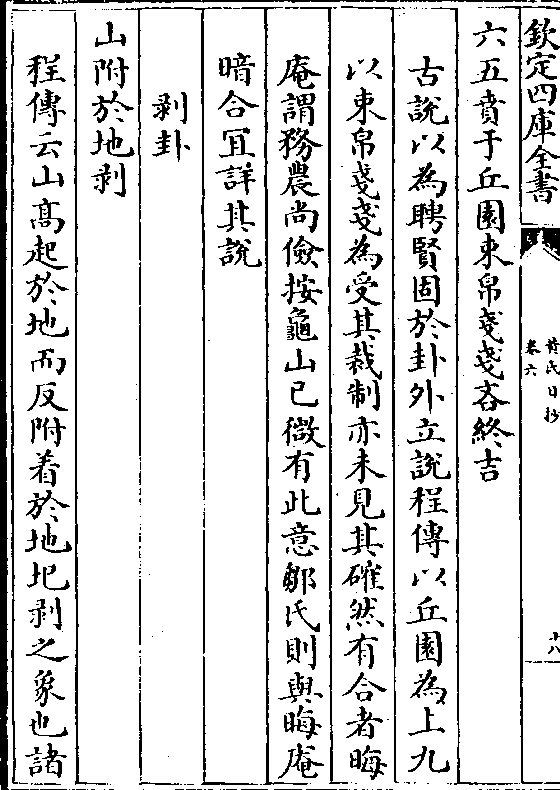 欽定四庫全書
黄氏日抄
卷六
十八
六五賁于丘園束帛戔戔吝終吉
古說以為聘賢固於卦外立說程傳以丘園為上九
以束帛戔戔為受其裁制亦未見其確然有合者晦
庵謂務農尚儉按龜山已微有此意鄒氏則與晦庵
暗合冝詳其說
剥卦
山附於地剥
程傳云山髙起於地而反附着於地圯剥之象也諸